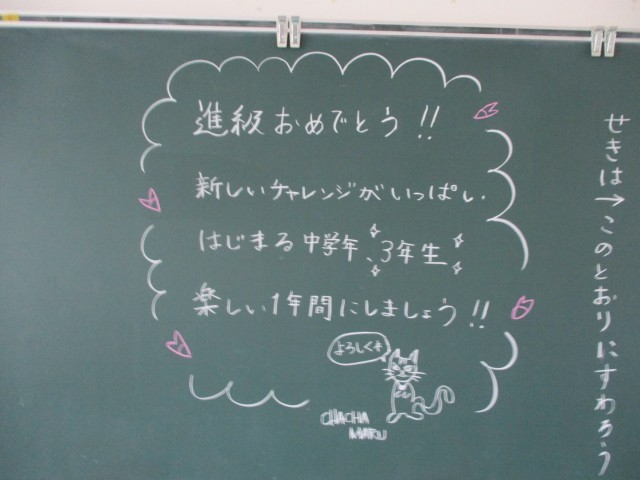 進級おめでとう!!
新しいチャレンジがいっぱい.
はじまる中学年、3年生
楽しい1年間にしましょう!!
よろしく*
CHACHA
MARU
せきは→このとおりにすわろう